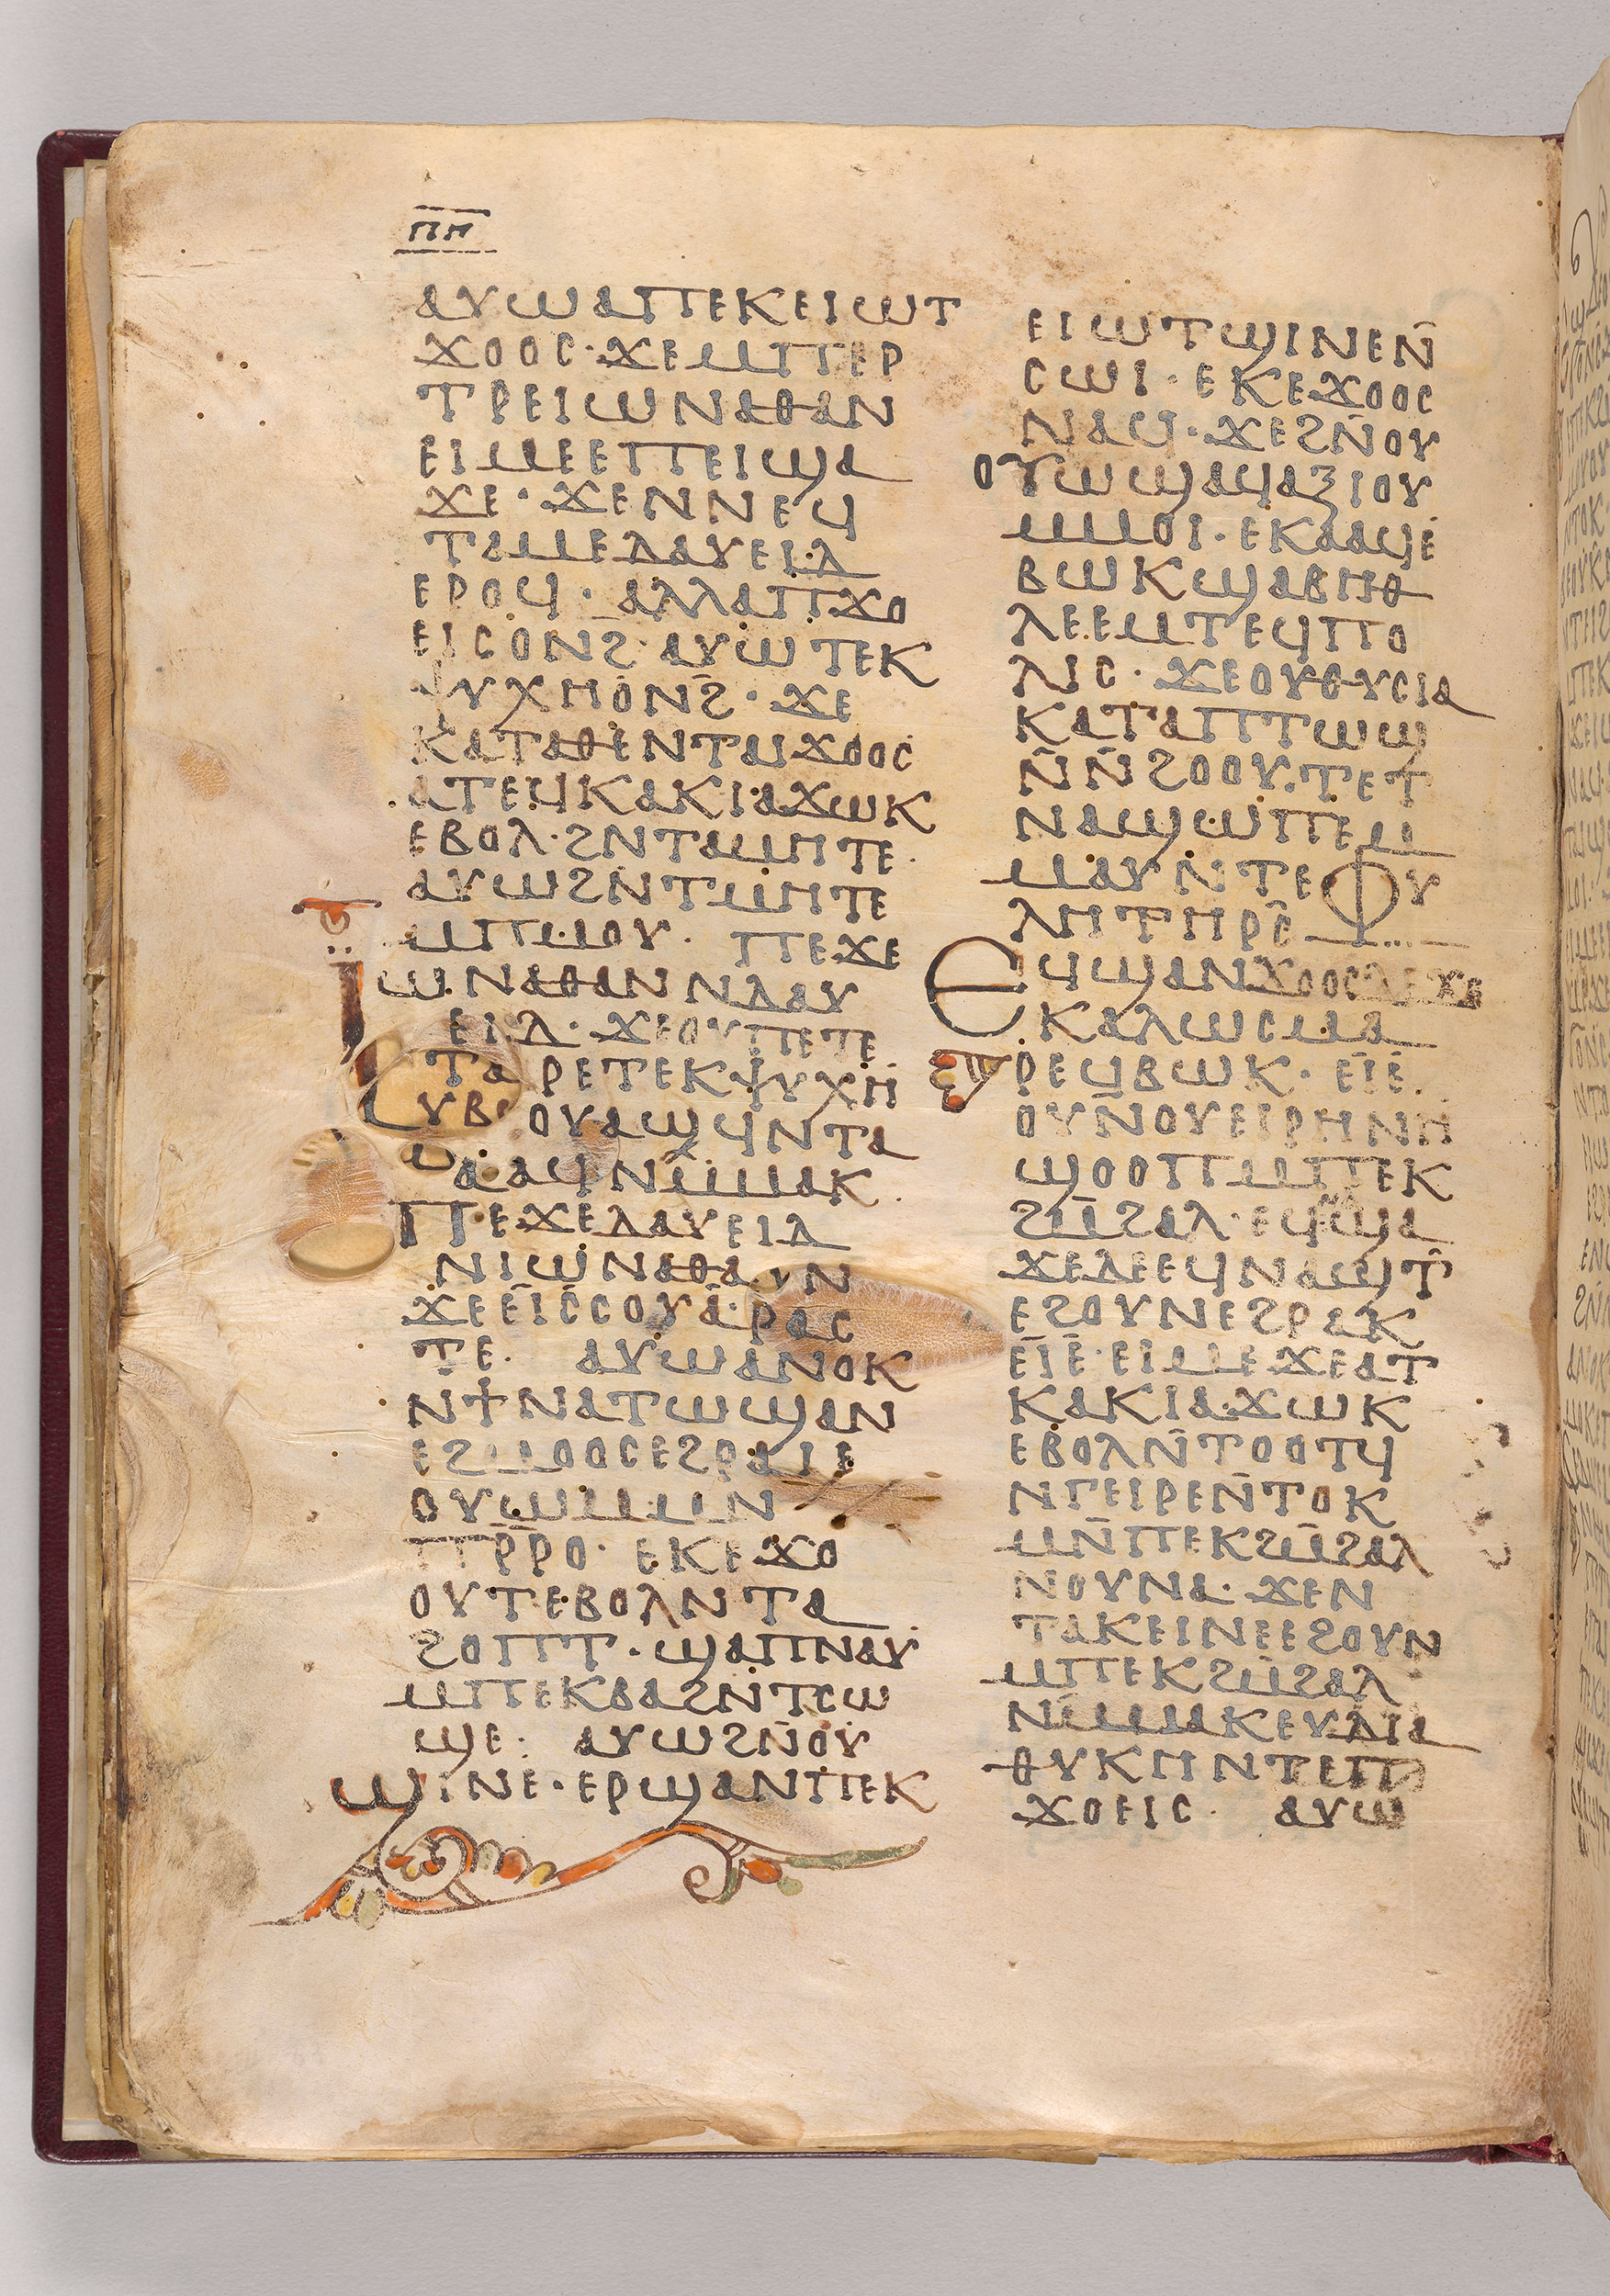 ⲡⲏ
ⲁⲩⲱⲁⲡⲉⲕⲉⲓⲱⲧ
ϫⲟⲟⲥ· ϫⲉⲙⲡⲉⲣ
ⲧⲣⲉⲓⲱⲛⲁⲑⲁⲛ
ⲉⲓⲙⲉⲉⲡⲉⲓϣⲁ
ϫⲉ· ϫⲉⲛⲛⲉϥ
ⲧⲁⲙⲉⲇⲁⲩⲉⲓⲇ
ⲉⲣⲟϥ· ⲁⲗⲗⲁⲡϫⲟ
ⲉⲓⲥⲟⲛϩ· ⲁⲩⲱⲧⲉⲕ
ⲯⲩⲭⲏⲟⲛϩ· ϫⲉ
ⲕⲁⲧⲁⲑⲉⲛⲧⲁⲓϫⲟⲟⲥ
ⲁⲧⲉϥⲕⲁⲕⲓⲁϫⲱⲕ
ⲉⲃⲟⲗ· ϩⲛⲧⲁⲙⲏⲧⲉ·
ⲁⲩⲱϩⲛⲧⲙⲏⲧⲉ
ⲙⲡⲙⲟⲩ· ⲡⲉϫⲉ
ⲓⲱⲛⲁⲑⲁⲛⲛⲇⲁⲩ
ⲉⲓⲇ· ϫⲉⲟⲩⲡⲉⲧⲉ
ⲧⲁⲣⲉⲧⲉⲕⲯⲩⲭⲏ
ⲟⲩⲁϣϥⲛⲧⲁ
ⲁⲁϥⲛⲙⲙⲁⲕ·
ⲡⲉϫⲉⲇⲁⲩⲉⲓⲇ
ⲛⲓⲱⲛⲁⲑⲁⲛ
ϫⲉⲉⲓⲥⲥⲟⲩⲁ· ⲣⲁⲥ
ⲧⲉ· ⲁⲩⲱⲁⲛⲟⲕ
ⲛϯⲛⲁⲧⲱϣⲁⲛ
ⲉϩⲙⲟⲟⲥⲉϩⲣⲁⲓⲉ
ⲟⲩⲱⲙⲙⲛ
ⲡⲣ̅ⲣⲟ· ⲉⲕⲉϫⲟ
ⲟⲩⲧⲉⲃⲟⲗⲛⲧⲁ
ϩⲟⲡⲧ· ϣⲁⲡⲛⲁⲩ
ⲙⲡⲉⲕⲃⲁϩⲛⲧⲥⲱ
ϣⲉ· ⲁⲩⲱϩⲛ̅ⲟⲩ
ϣⲓⲛⲉ· ⲉⲣϣⲁⲛⲡⲉⲕ
ⲉⲓⲱⲧϣⲓⲛⲉⲛ̅
ⲥⲱⲓ· ⲉⲕⲉϫⲟⲟⲥ
ⲛⲁϥ· ϫⲉϩⲛ̅ⲟⲩ
ⲟⲩⲱϣⲁϥⲁⲝⲓⲟⲩ
ⲙⲙⲟⲓ· ⲉⲕⲁⲁϥⲉ
ⲃⲱⲕϣⲁⲃⲏⲑ
ⲗⲉⲉⲙⲧⲉϥⲡⲟ
ⲗⲓⲥ· ϫⲉⲟⲩⲑⲩⲥⲓⲁ
ⲕⲁⲧⲁⲡⲧⲱϣ
ⲛ̅ⲛ̅ϩⲟⲟⲩ· ⲧⲉⲧ
ⲛⲁϣⲱⲡⲉⲙ
ⲙⲁⲩⲛⲧⲉⲫⲩ
ⲗⲏⲧⲏⲣⲥ̅
ⲉϥϣⲁⲛϫⲟⲟⲥⲇⲉϫⲉ
ⲕⲁⲗⲱⲥⲙⲁ
ⲣⲉϥⲃⲱⲕ· ⲉⲓⲉ
ⲟⲩⲛ̅ⲟⲩⲉⲓⲣⲏⲛⲏ
ϣⲟⲟⲡⲙⲡⲉⲕ
ϩⲙ̅ϩⲁⲗ· ⲉϥϣⲁ
ϫⲉⲇⲉⲉϥⲛⲁϣⲧ̅
ⲉϩⲟⲩⲛⲉϩⲣⲁⲕ
ⲉⲓⲉ· ⲉⲓⲙⲉϫⲉⲁⲧ
ⲕⲁⲕⲓⲁ· ϫⲱⲕ
ⲉⲃⲟⲗⲛ̅ⲧⲟⲟⲧϥ
ⲛⲅⲉⲓⲣⲉⲛ̅ⲧⲟⲕ
ⲙⲛ̅ⲡⲉⲕϩⲙ̅ϩⲁⲗ
ⲛⲟⲩⲛⲁ· ϫⲉⲛ
ⲧⲁⲕⲉⲓⲛⲉⲉϩⲟⲩⲛ
ⲙⲡⲉⲕϩⲙ̅ϩⲁⲗ
ⲛⲙ̅ⲙⲁⲕⲉⲩⲇⲓⲁ
ⲑⲩⲕⲏⲛⲧⲉⲡ
ϫⲟⲉⲓⲥ· ⲁⲩⲱ